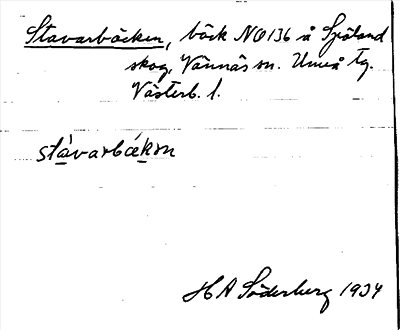 Stavarbäcken, bäck NO136 å Spöland
skog, Vännäs sn. Umeå tg.
Västerb. l.
stávarbækɐn
H A Söderberg 1934